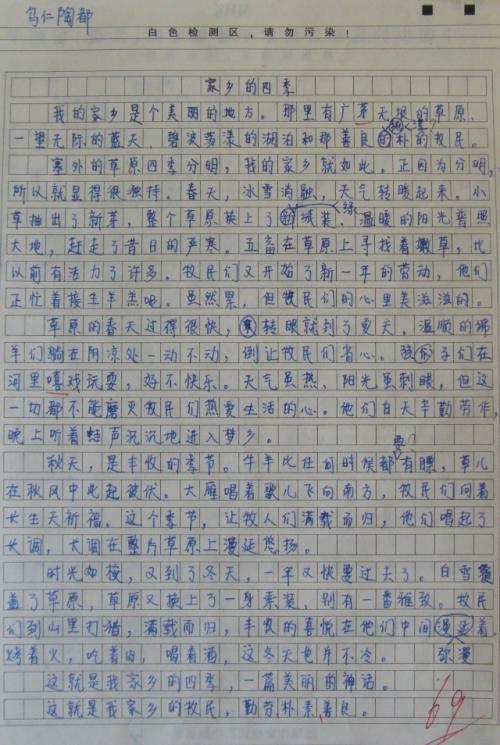 乌仁陶都
白色检测区，请勿污染！
家乡的四季
我的家乡是个美丽的地方。那里有广茅无垠的草原、
一望无际的蓝天、碧波荡漾的湖泊和那善良的朴的牧民。
塞外的草原四季分明，我的家乡就如此。正因为分明，
所以就显得很独特。春天，冰雪消融，天气转暖起来。小
草抽出了新芽，整个草原换上了绿城装。温暖的阳光普照
大地，赶走了昔日的严寒。五畜在草原上寻找着嫩草，比
以前有活力了许多。牧民们又开始了新一年的劳动，他们
正忙着接生羊羔呢。虽然累，但牧民们的心里美滋滋的。
草原的春天过得很快，转眼就到了夏天，温顺的绵
羊们躺在阴凉处一动不动，倒让牧民们省心。孩子们在
河里嘻戏玩耍，好不快乐。天气虽热、阳光虽刺眼，但这
一切都不能磨灭牧民们热爱生活的心。他们白天辛勤劳作，
晚上听着蛙声沉沉地进入梦乡。
要
秋天，是丰收的季节。牛羊比任何时侯都有膘，草儿
在秋风中此起被伏。大雁唱着歌儿飞向南方，牧民们向着
长生天祈福。这个季节，让牧人们满载而归，他们唱起了
长调，长调在整片草原上漫延悠扬。
时光如梭，又到了冬天，一年又快要过去了。白雪覆
盖了草原，草原又换上了一身素装，别有一番雅致。牧民
们到山里打猎，满载而归，丰收的喜悦在他们中间漫延着。
烤着火，吃着肉，喝着酒，这冬天也并不冷。 弥漫
这就是我家乡的四季，一篇美丽的神话。
这就是我家乡的牧民，勤劳、朴素、善良。
69